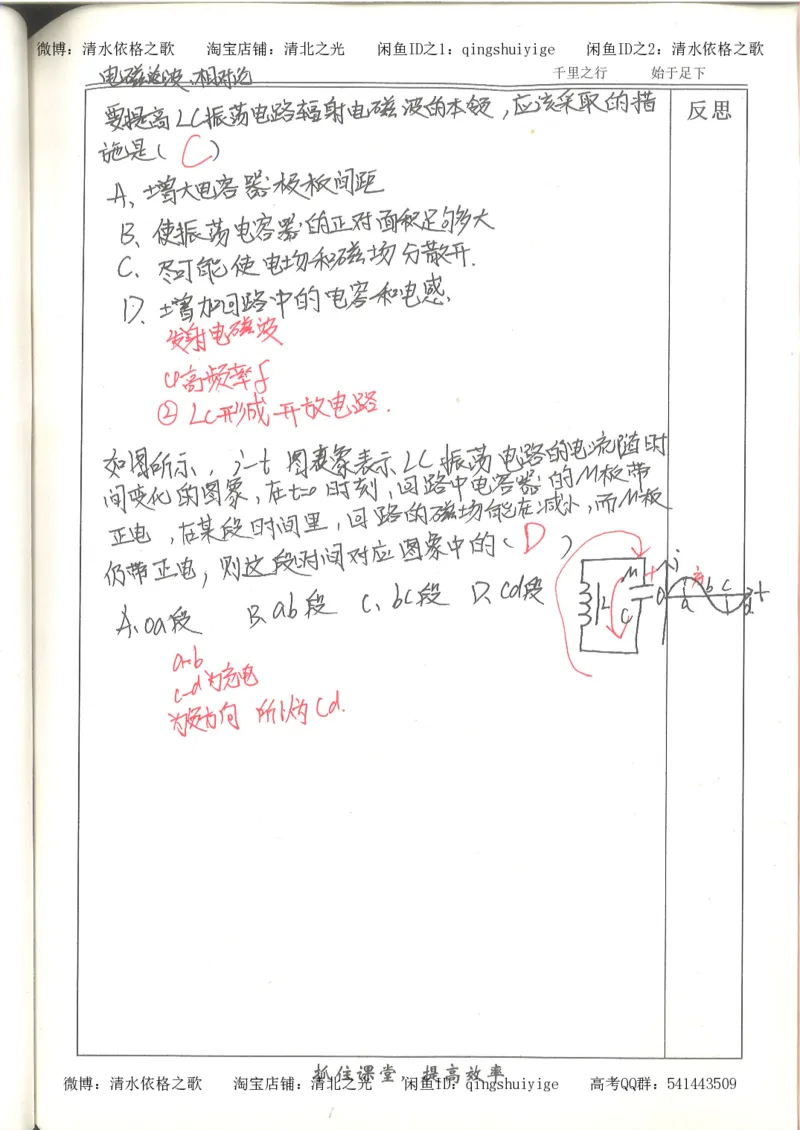 微博：清水依格之歌 淘宝店铺：清北之光 闲鱼ID之1：qingshuiyige 闲鱼ID之2：清水依格之歌
千里之行 始于足下
反思
要提高LC振荡电路辐射电磁波的本领，应该采取的措
施是（ C ）
A、增大电容器极板间距
B、使振荡电容器的正对面积足够大
C、尽可能使电场和磁场分散开.
D、增加回路中的电容和电感.
发射电磁波
①高频率f
② LC形成开放电路.
如图所示，i-t 图象表示LC振荡电路的电流随时
间变化的图象，在t=0时刻，回路中电容器的M板带
正电，在某段时间里，回路的磁场能在减小，而M板
仍带正电，则这段时间对应图象中的（ D ）
A、oa段 B、ab段 C、bc段 D、cd段
M + L C
i O a b c d t
a-b
c-d为充电
为负方向 所以为cd.
抓住课堂，提高效率
微博：清水依格之歌 淘宝店铺：清北之光 闲鱼ID：qingshuiyige 高考QQ群：541443509